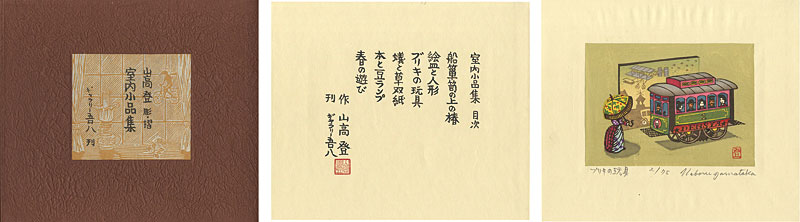 山高登 彫摺
室内小品集
ギャラリー吾八 刊
室内小品集 目次
船簞笥の上の椿
絵皿と人形
ブリキの玩具
本と豆ランプ
春の遊び
作 山高登
刊 ギャラリー吾八
ブリキの玩具
Noboru Yamataka